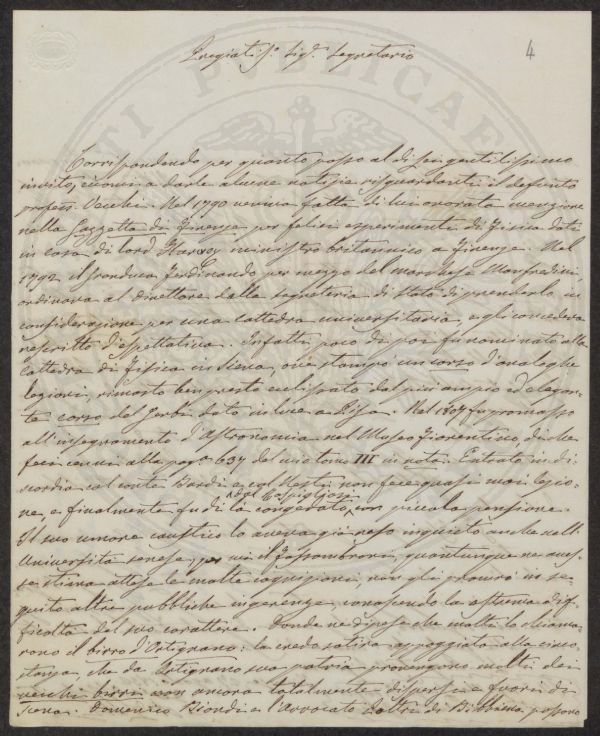 4
Pregiatis.º Sig.r Segretario
Corrispondendo per quanto posso al di Lei gentilissimo
invito, incomincio a darle alcune notizie risguardanti il defunto
profess. Vecchi. Nel 1790 veniva fatta di lui onorata menzione
nella Gazzetta di Firenze per felici esperimenti di Fisica dati
in casa di lord Harvey ministro britannico a Firenze. Nel
1792 il granduca Ferdinando per mezzo del marchese Manfredini,
ordinava al direttore della segreteria di stato di prenderlo in
considerazione per una cattedra universitaria, e gli concedeva
rescritto d'espettativa. Infatti poco di poi fu nominato alla
cattedra di Fisica in Siena, ove stampò un corso d'analoghe
lezioni, rimasto ben presto eclissato dal più ampio ed elegan-
te corso del Gerbi, dato in luce a Pisa. Nel 1807 fu promosso
all'insegnamento d'Astronomia nel Museo Fiorentino, di che
feci cenni alla pag.ª 637 del mio tomo III in nota. Entrato in di-
scordia col conte Bardi e col Nesti non fece quasi mai lezio-
ne, e finalmente fu di là congedato, con piccola pensione.
Il suo umore caustico lo aveva già reso inquieto anche nell'
Università senese, per cui il Fossombroni, quantunque ne aves-
se stima attese le molte cognizioni, non gli procurò in se-
guito altre pubbliche ingerenze, conoscendo la estrema dif-
ficoltà del suo carattere. Donde ne dipese che molti lo chiama-
rono il birro d'Ortignano: la credo satira appoggiata alla circo-
stanza, che da Ortignano sua patria provengono molti dei
vecchi birri non ancora totalmente dispersi e fuori di
Domenico Biondi e l'Avvocato di Bibbiena possono